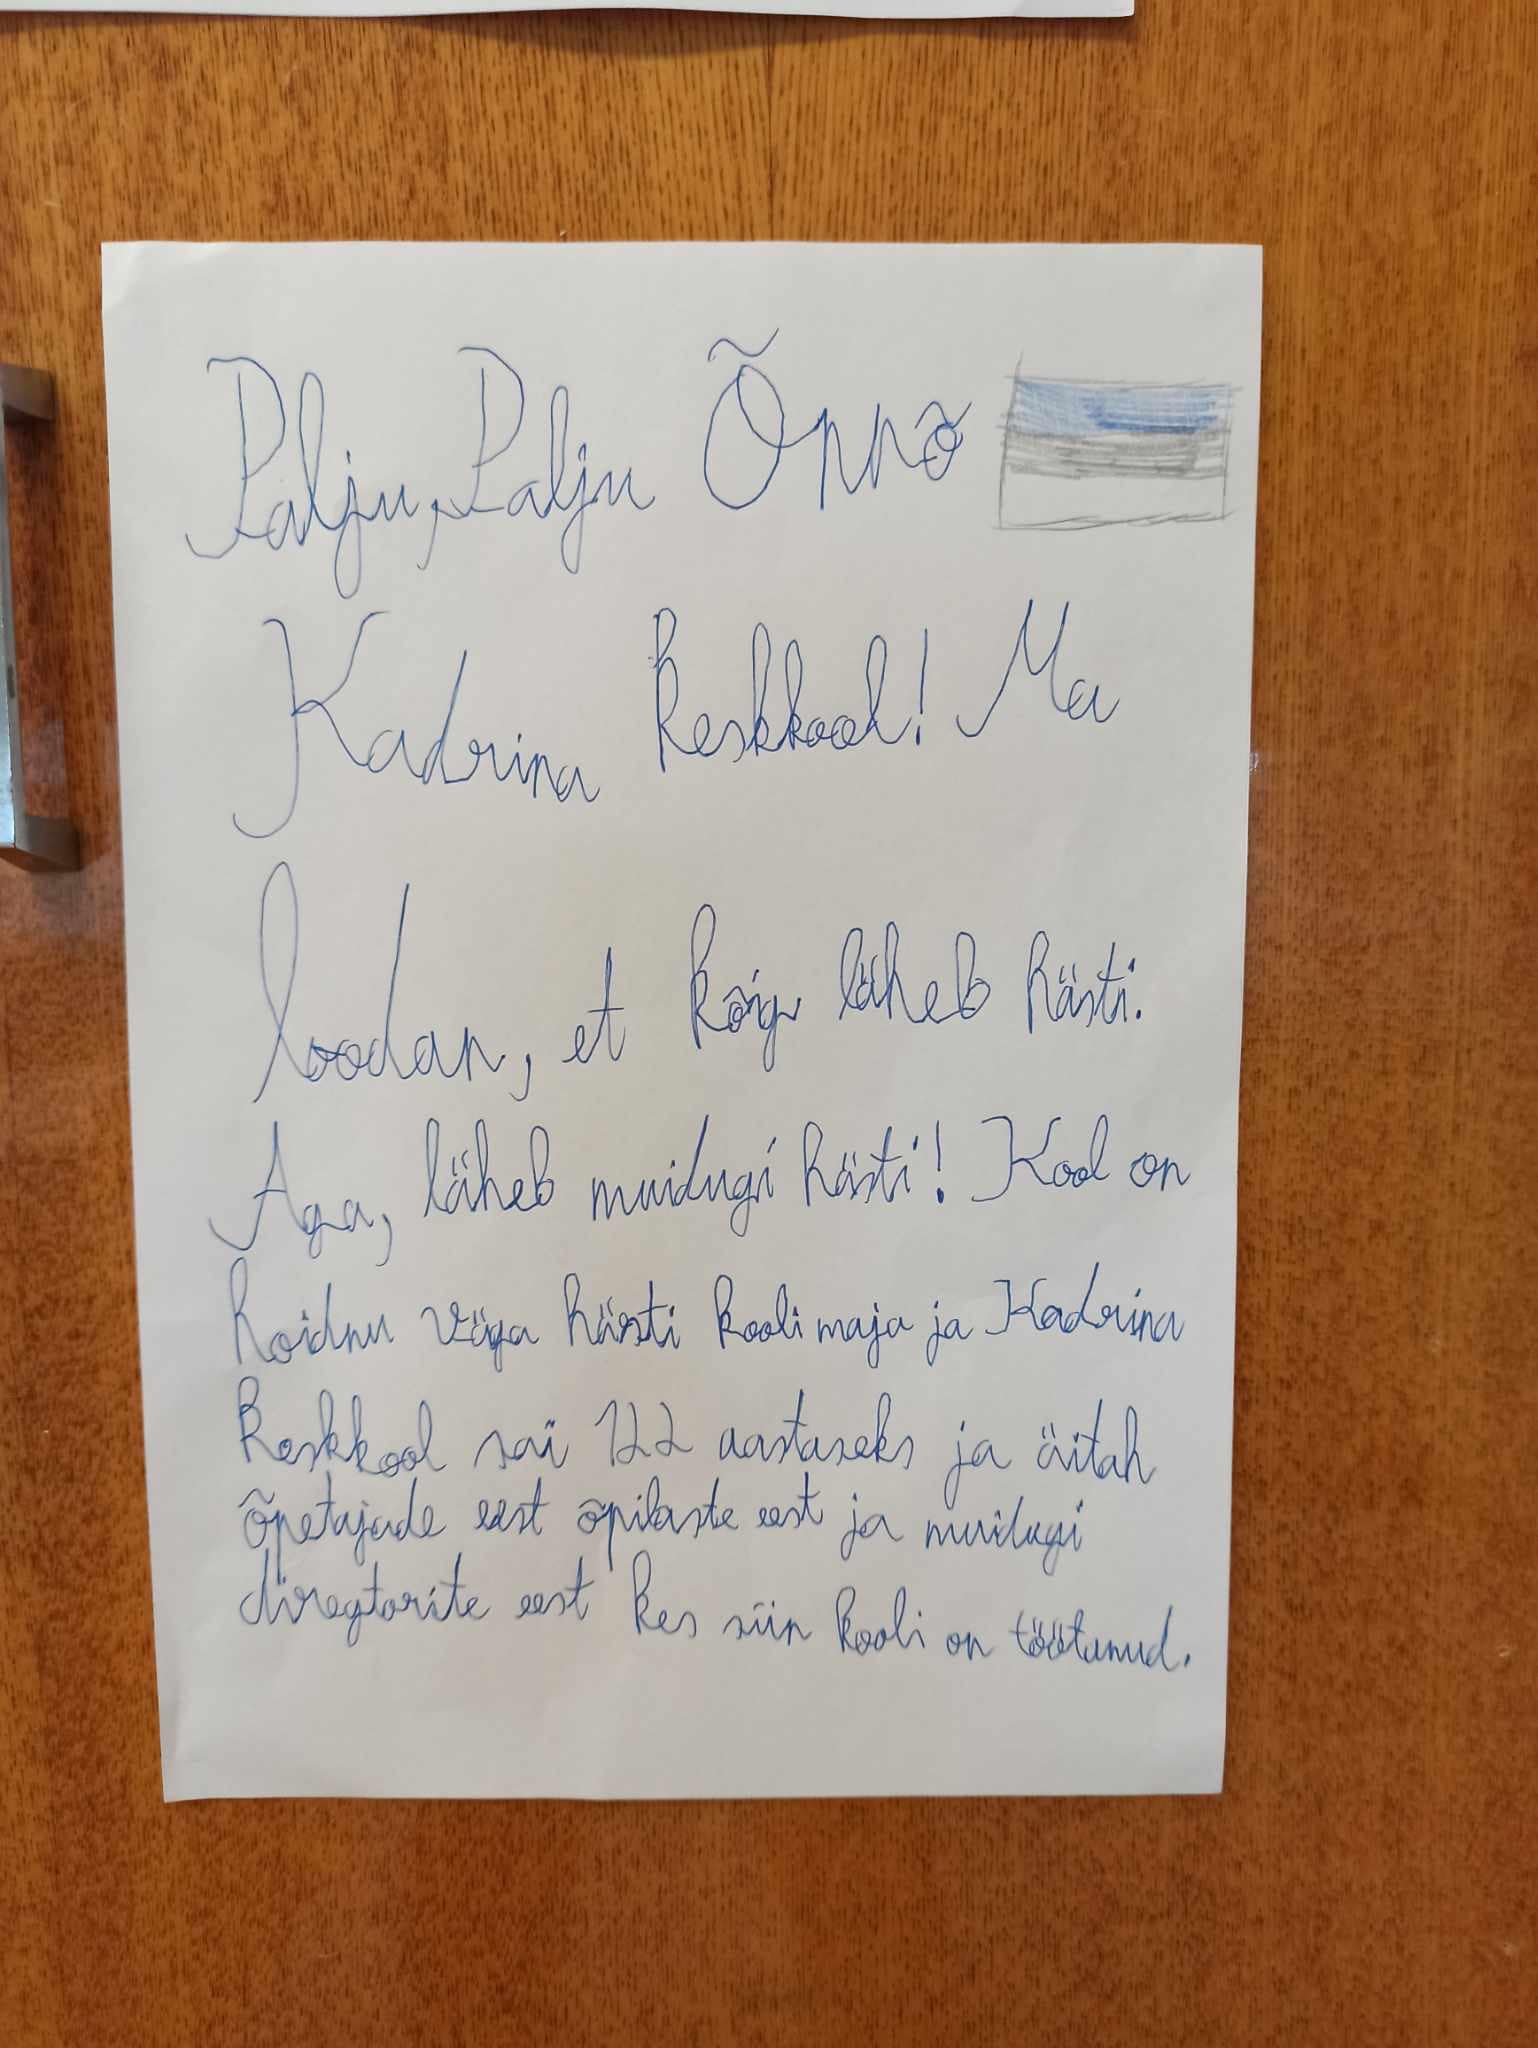 Palju, Palju Õnnõ
Kadrina keskkool! Ma
loodan, et kõig läheb hästi.
Aga, läheb muidugi hästi! Kool on
hoidnu väga hästi kooli maja ja Kadrina
keskkool sai 122 aastaseks ja äitah
õpetajade eest õpilaste eest ja muidugi
diregtorite eest kes siin kooli on töötanud.